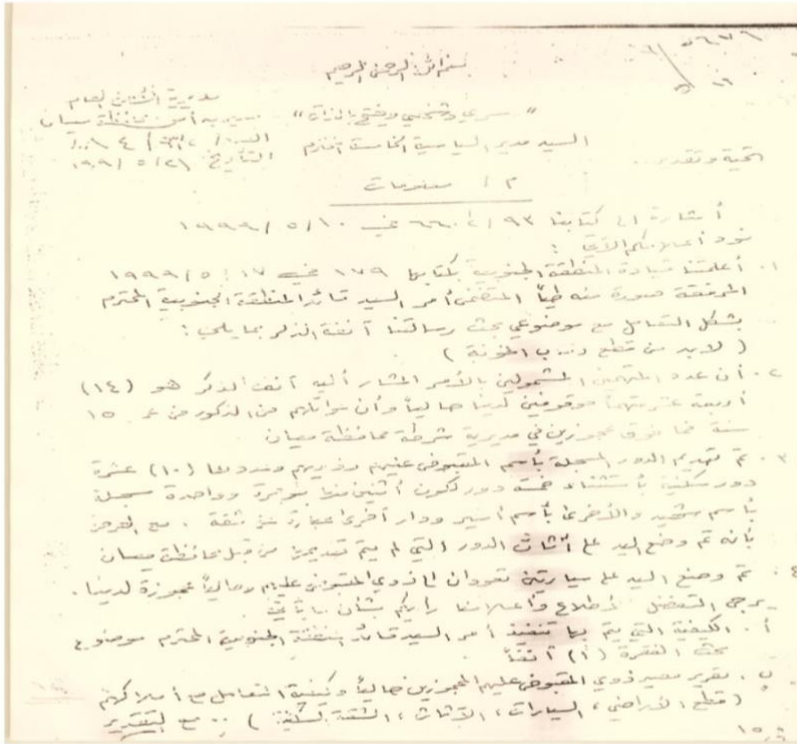 ٥٦٧٩
بسم الله الرحمن الرحيم
مديرية الأمن العام
مديرية أمن محافظة ميسان
" سري وشخصي ويفتح بالذات "
السيد مدير السياسية الخامسة المحترم
التاريخ
تحية وتقدير ..
م / معلومات
أشارة الى كتابنا ٩٣ / ٦٦٠ في ١٠ / ٥ / ١٩٩٩
نود أعلامكم الآتي :
١. أعلمتنا قيادة المنطقة الجنوبية بكتابها ١٧٩ في ١٧ / ٥ / ١٩٩٩
المرفقة صورة منه طياً المتضمن أمر السيد قائد المنطقة الجنوبية المحترم
بشكل التعامل مع موضوعي بحث رسالتنا آنفة الذكر بما يلي :
( لابد من قطع الخونة )
٢. أن عدد المتهمين المشمولين بالأمر المشار أليه آنف الذكر هو (١٤)
أربعة عشر متهماً موقوفين لدينا حالياً وأن عوائلهم من الذكور من عمر ١٥
سنة فما فوق محجوزين في مديرية شرطة محافظة ميسان
٣. تم تهديم الدور المسجلة بأسم المقبوض عليهم وذويهم وعددها (١٠) عشرة
دور سكنية بأستثناء خمسة دور لكون أثنين منها مؤجرة وواحدة مسجلة
بأسم شهيد والأخرى بأسم أسير ودار أخرى عبارة عن شقة . مع العرض
بأنه تم وضع اليد على أثاث الدور التي لم يتم تهديمها من قبل محافظة ميسان
٤. تم وضع اليد على سيارتين تعودان الى ذوي المقبوض عليهم وحالياً محجوزة لدينا .
يرجى التفضل بالأطلاع وأعلامنا رأيكم بشأن ما يأتي :
أ. الكيفية التي يتم بها تنفيذ أمر السيد قائد المنطقة الجنوبية المحترم موضوع
بحث الفقرة (١) آنفاً
ب. تقرير مصير ذوي المقبوض عليهم المحجوزين حالياً وكيفية التعامل مع أملاكهم
( قطع الأراضي ، السيارات ، الأثاث ، الشقة السكنية ) .. مع التقدير